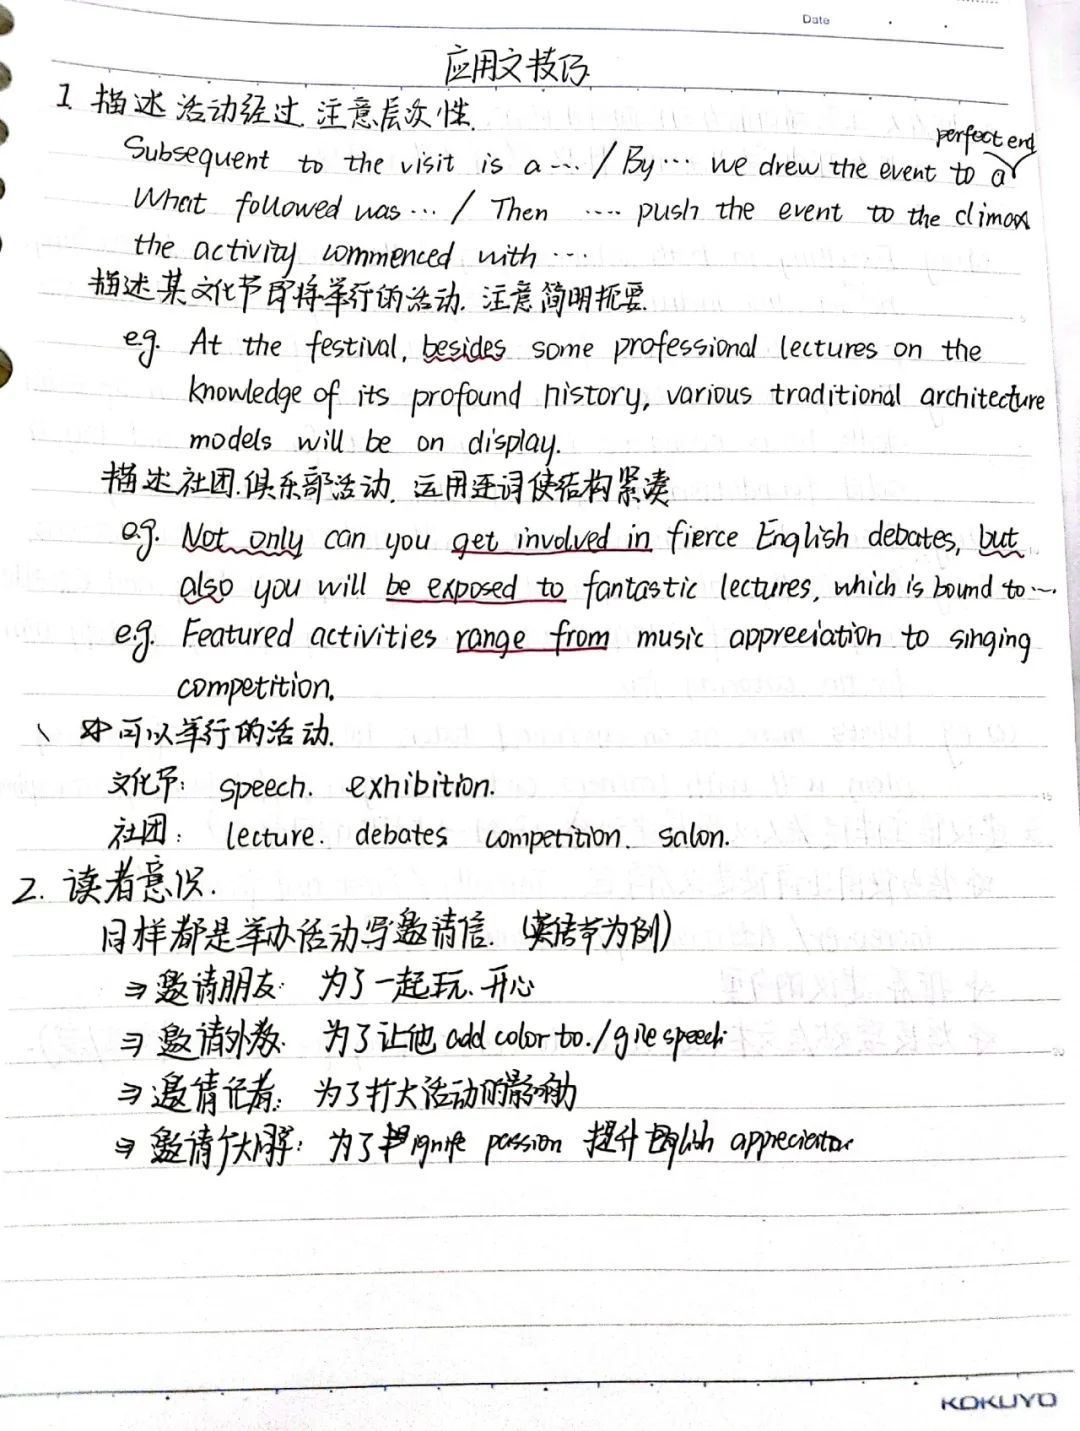 Date
应用文技巧
1 描述 活动经过 注意层次性.
perfect end
Subsequent to the visit is a ... / By ... we drew the event to a
What followed was ... / Then .... push the event to the climax
the activity commenced with ...
描述某文化节即将举行的活动. 注意简明扼要.
e.g. At the festival, besides some professional lectures on the
knowledge of its profound history, various traditional architecture
models will be on display.
描述社团.俱乐部活动. 运用连词使结构紧凑
e.g. Not only can you get involved in fierce English debates, but
also you will be exposed to fantastic lectures, which is bound to ...
e.g. Featured activities range from music appreciation to singing
competition.
可以举行的活动.
文化节: speech. exhibition.
社团: lecture. debates competition. salon.
2. 读者意识.
同样都是举办活动写邀请信. (英语节为例)
⇒ 邀请朋友: 为了一起玩.开心
⇒ 邀请外教. 为了让他 add color to. / give speech
⇒ 邀请记者: 为了扩大活动的影响力
⇒ 邀请广大同学: 为了 ignite passion 提升 English appreciation
KOKUYO